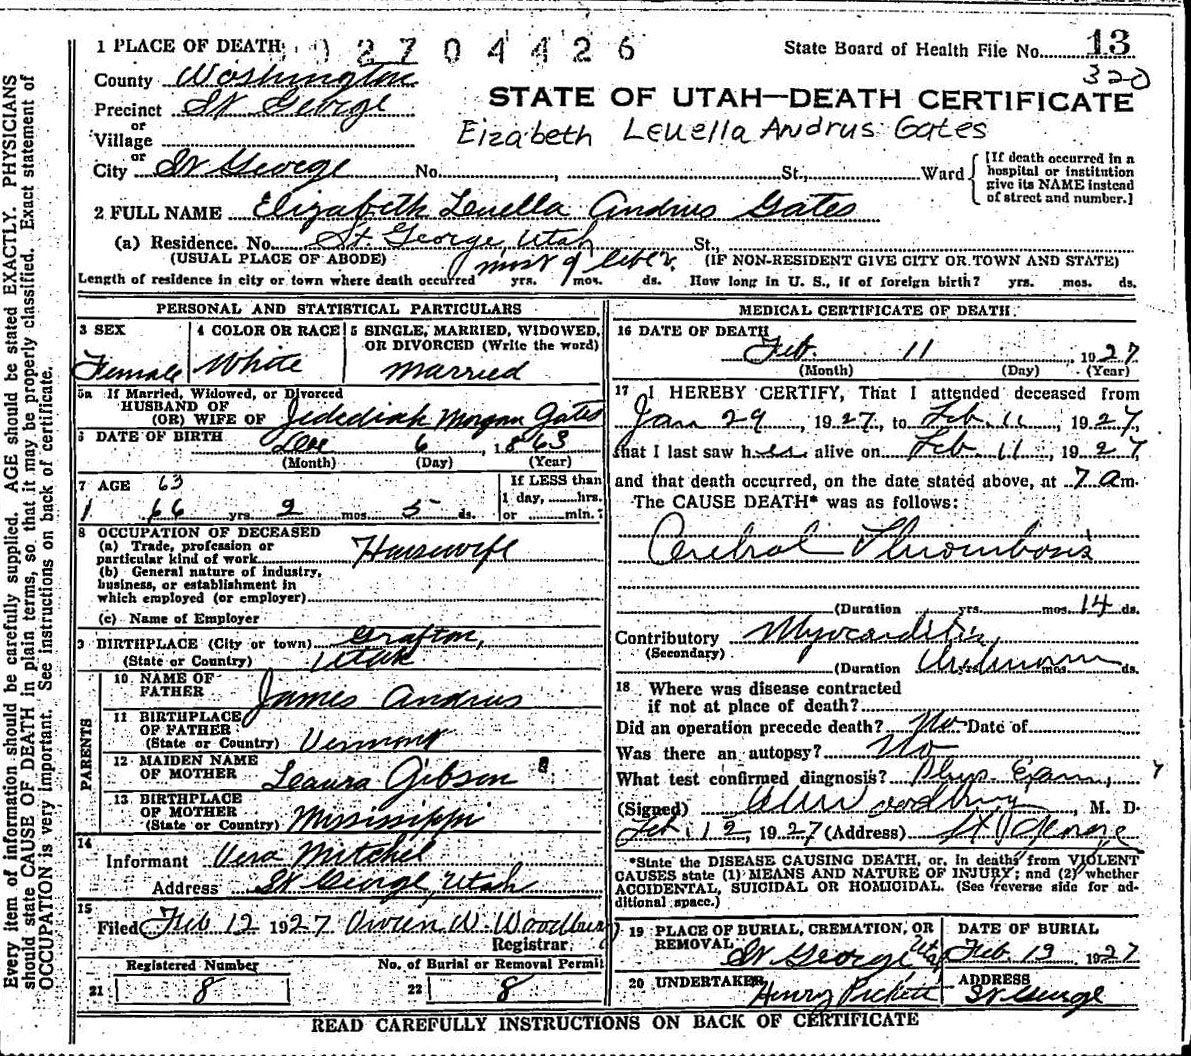 Every item of information should be carefully supplied. AGE should be stated EXACTLY. PHYSICIANS
should state CAUSE OF DEATH in plain terms, so that it may be properly classified. Exact statement of
OCCUPATION is very important. See instructions on back of certificate.
1 PLACE OF DEATH
02704426
State Board of Health File No. 13
320
County Washington
Precinct St George
STATE OF UTAH—DEATH CERTIFICATE
or
Village
Eizabeth Leuella Andrus Gates
or
City St George No. , St., Ward
[If death occurred in a
hospital or institution
give its NAME instead
of street and number.]
2 FULL NAME Elizabeth Leuella Andrus Gates
(a) Residence. No. St. George, Utah St.,
(USUAL PLACE OF ABODE) (IF NON-RESIDENT GIVE CITY OR TOWN AND STATE)
most of life
Length of residence in city or town where death occurred yrs. mos. ds. How long in U. S., if of foreign birth? yrs. mos. ds.
PERSONAL AND STATISTICAL PARTICULARS
3 SEX
Female
4 COLOR OR RACE
White
5 SINGLE, MARRIED, WIDOWED,
OR DIVORCED (Write the word)
Married
5a If Married, Widowed, or Divorced
HUSBAND OF
(OR) WIFE OF Jedediah Morgan Gates
6 DATE OF BIRTH Dec 6, 1863
(Month) (Day) (Year)
7 AGE 63
66 yrs. 2 mos. 5 ds.
If LESS than
1 day, hrs.
or min.?
8 OCCUPATION OF DECEASED
(a) Trade, profession or
particular kind of work Housewife
(b) General nature of industry,
business, or establishment in
which employed (or employer)
(c) Name of Employer
9 BIRTHPLACE (City or town) Grafton,
(State or Country) Utah
PARENTS
10 NAME OF
FATHER James Andrus
11 BIRTHPLACE
OF FATHER
(State or Country) Vermont
12 MAIDEN NAME
OF MOTHER Leaura Gibson
13 BIRTHPLACE
OF MOTHER
(State or Country) Mississippi
14
Informant Vera Mitchel
Address St George, Utah
15
Filed Feb 12 1927 Owen W. Woodbury
Registrar
Registered Number
21 8
No. of Burial or Removal Permit
22 8
MEDICAL CERTIFICATE OF DEATH
16 DATE OF DEATH
Feb. 11, 1927
(Month) (Day) (Year)
17 I HEREBY CERTIFY, That I attended deceased from
Jan 29, 1927, to Feb. 11, 1927,
that I last saw her alive on Feb 11, 1927
and that death occurred, on the date stated above, at 7 am.
The CAUSE DEATH* was as follows:
Cerebral Thrombosis
(Duration yrs. mos. 14 ds.
Contributory Myocarditis,
(Secondary)
(Duration Unknown mos. ds.
18 Where was disease contracted
if not at place of death?
Did an operation precede death? No Date of
Was there an autopsy? No
What test confirmed diagnosis? Phys Exam,
(Signed) Woodbury, M. D.
Feb. 12, 1927 (Address) St George
*State the DISEASE CAUSING DEATH, or, in deaths from VIOLENT
CAUSES state (1) MEANS AND NATURE OF INJURY; and (2) whether
ACCIDENTAL, SUICIDAL OR HOMICIDAL. (See reverse side for ad-
ditional space.)
19 PLACE OF BURIAL, CREMATION, OR
REMOVAL
St George Utah
DATE OF BURIAL
Feb. 13 1927
20 UNDERTAKER
Henry Pickett
ADDRESS
St George
READ CAREFULLY INSTRUCTIONS ON BACK OF CERTIFICATE